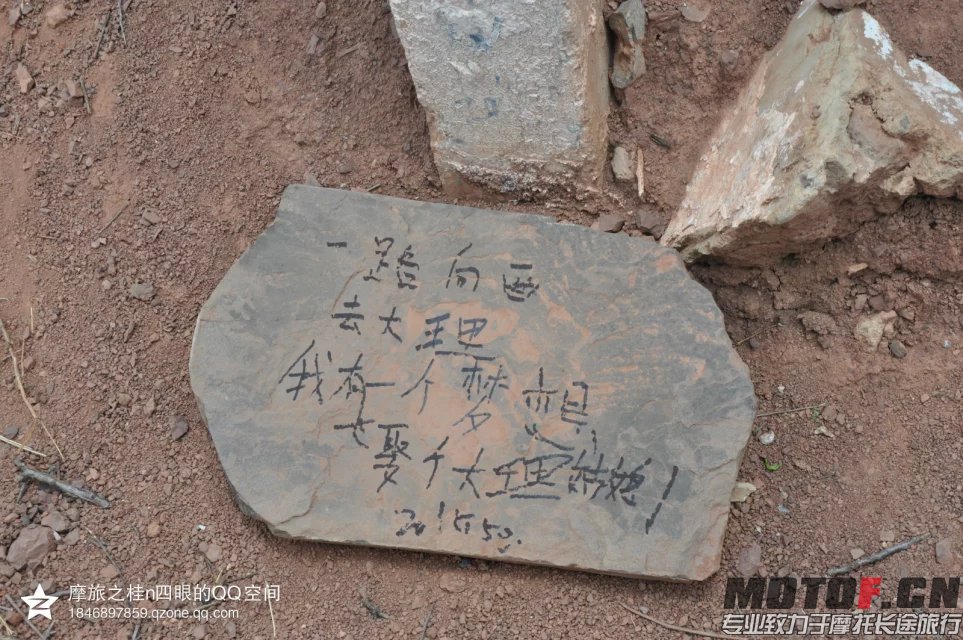 一路向西
去大理
我有一个梦想
去娶个大理姑娘!
2015.5.2.
摩旅之桂n四眼的QQ空间
1846897859.qzone.qq.com
MOTOF.CN
专业致力于摩托长途旅行